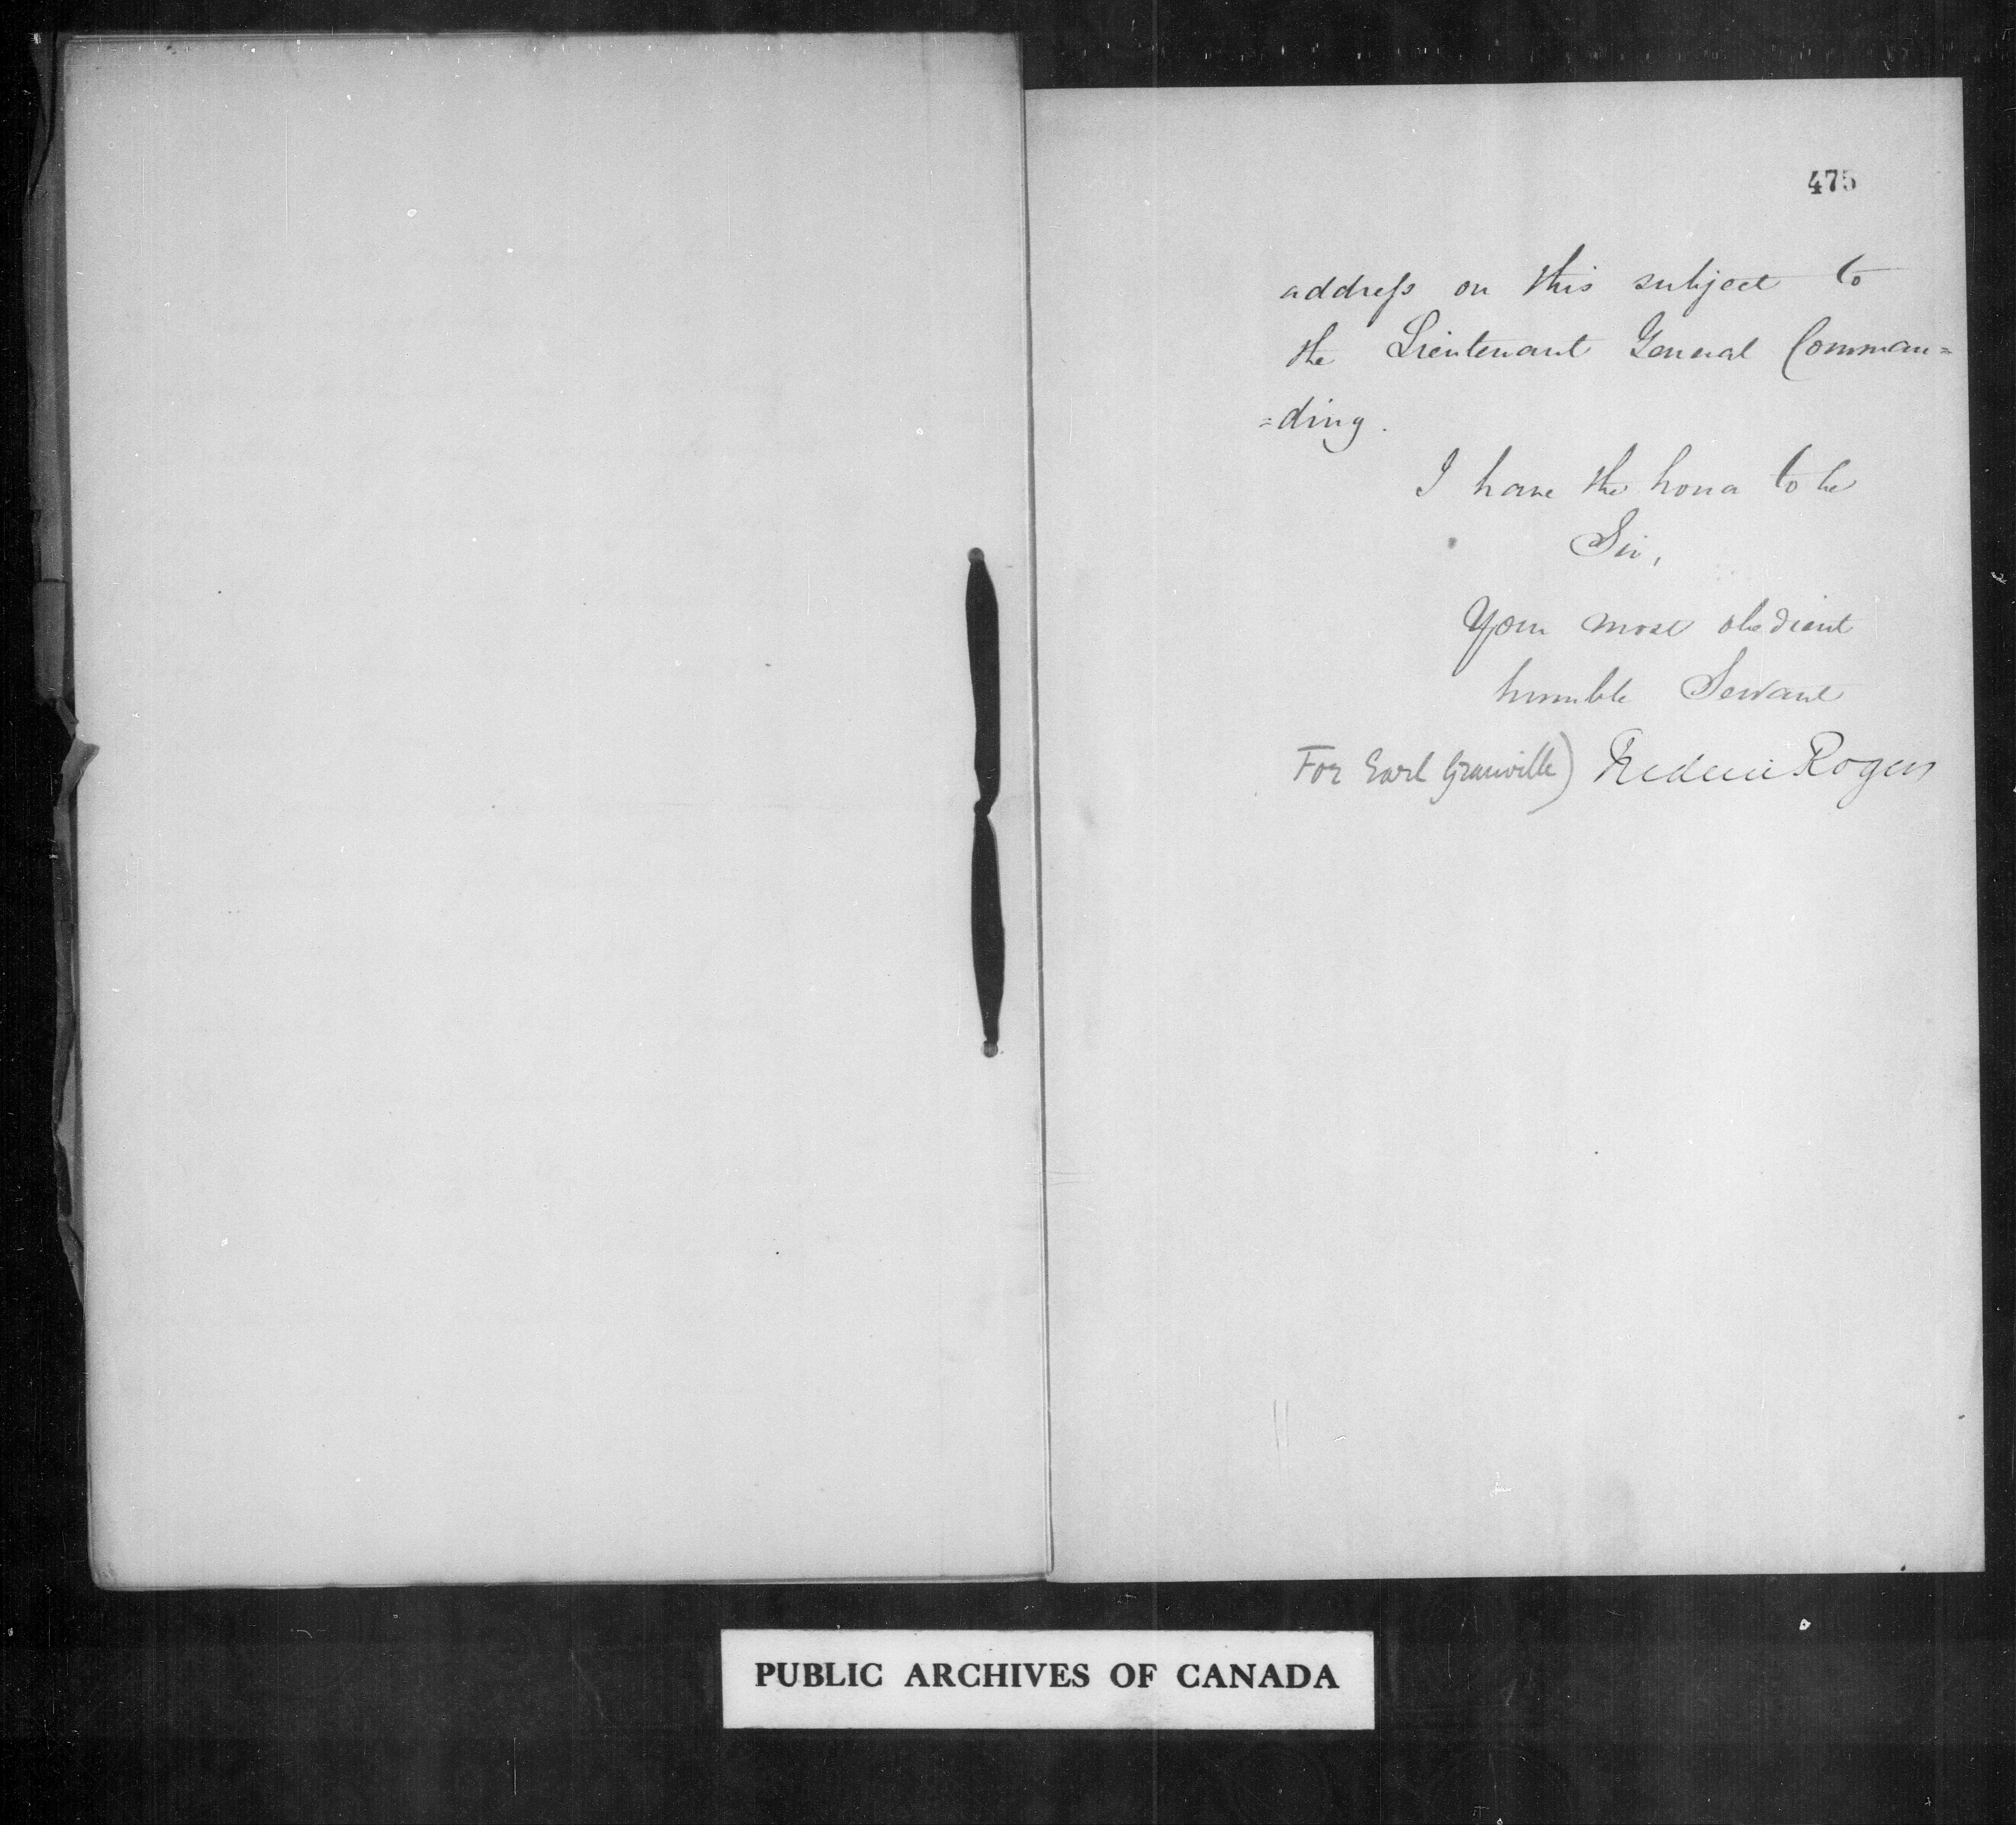 475
address on this subject to
the Lieutenant General Comman=
=ding.
I have the honor to be
Sir,
Your most obedient
humble Servant
For Earl Granville) Frederic Rogers
PUBLIC ARCHIVES OF CANADA